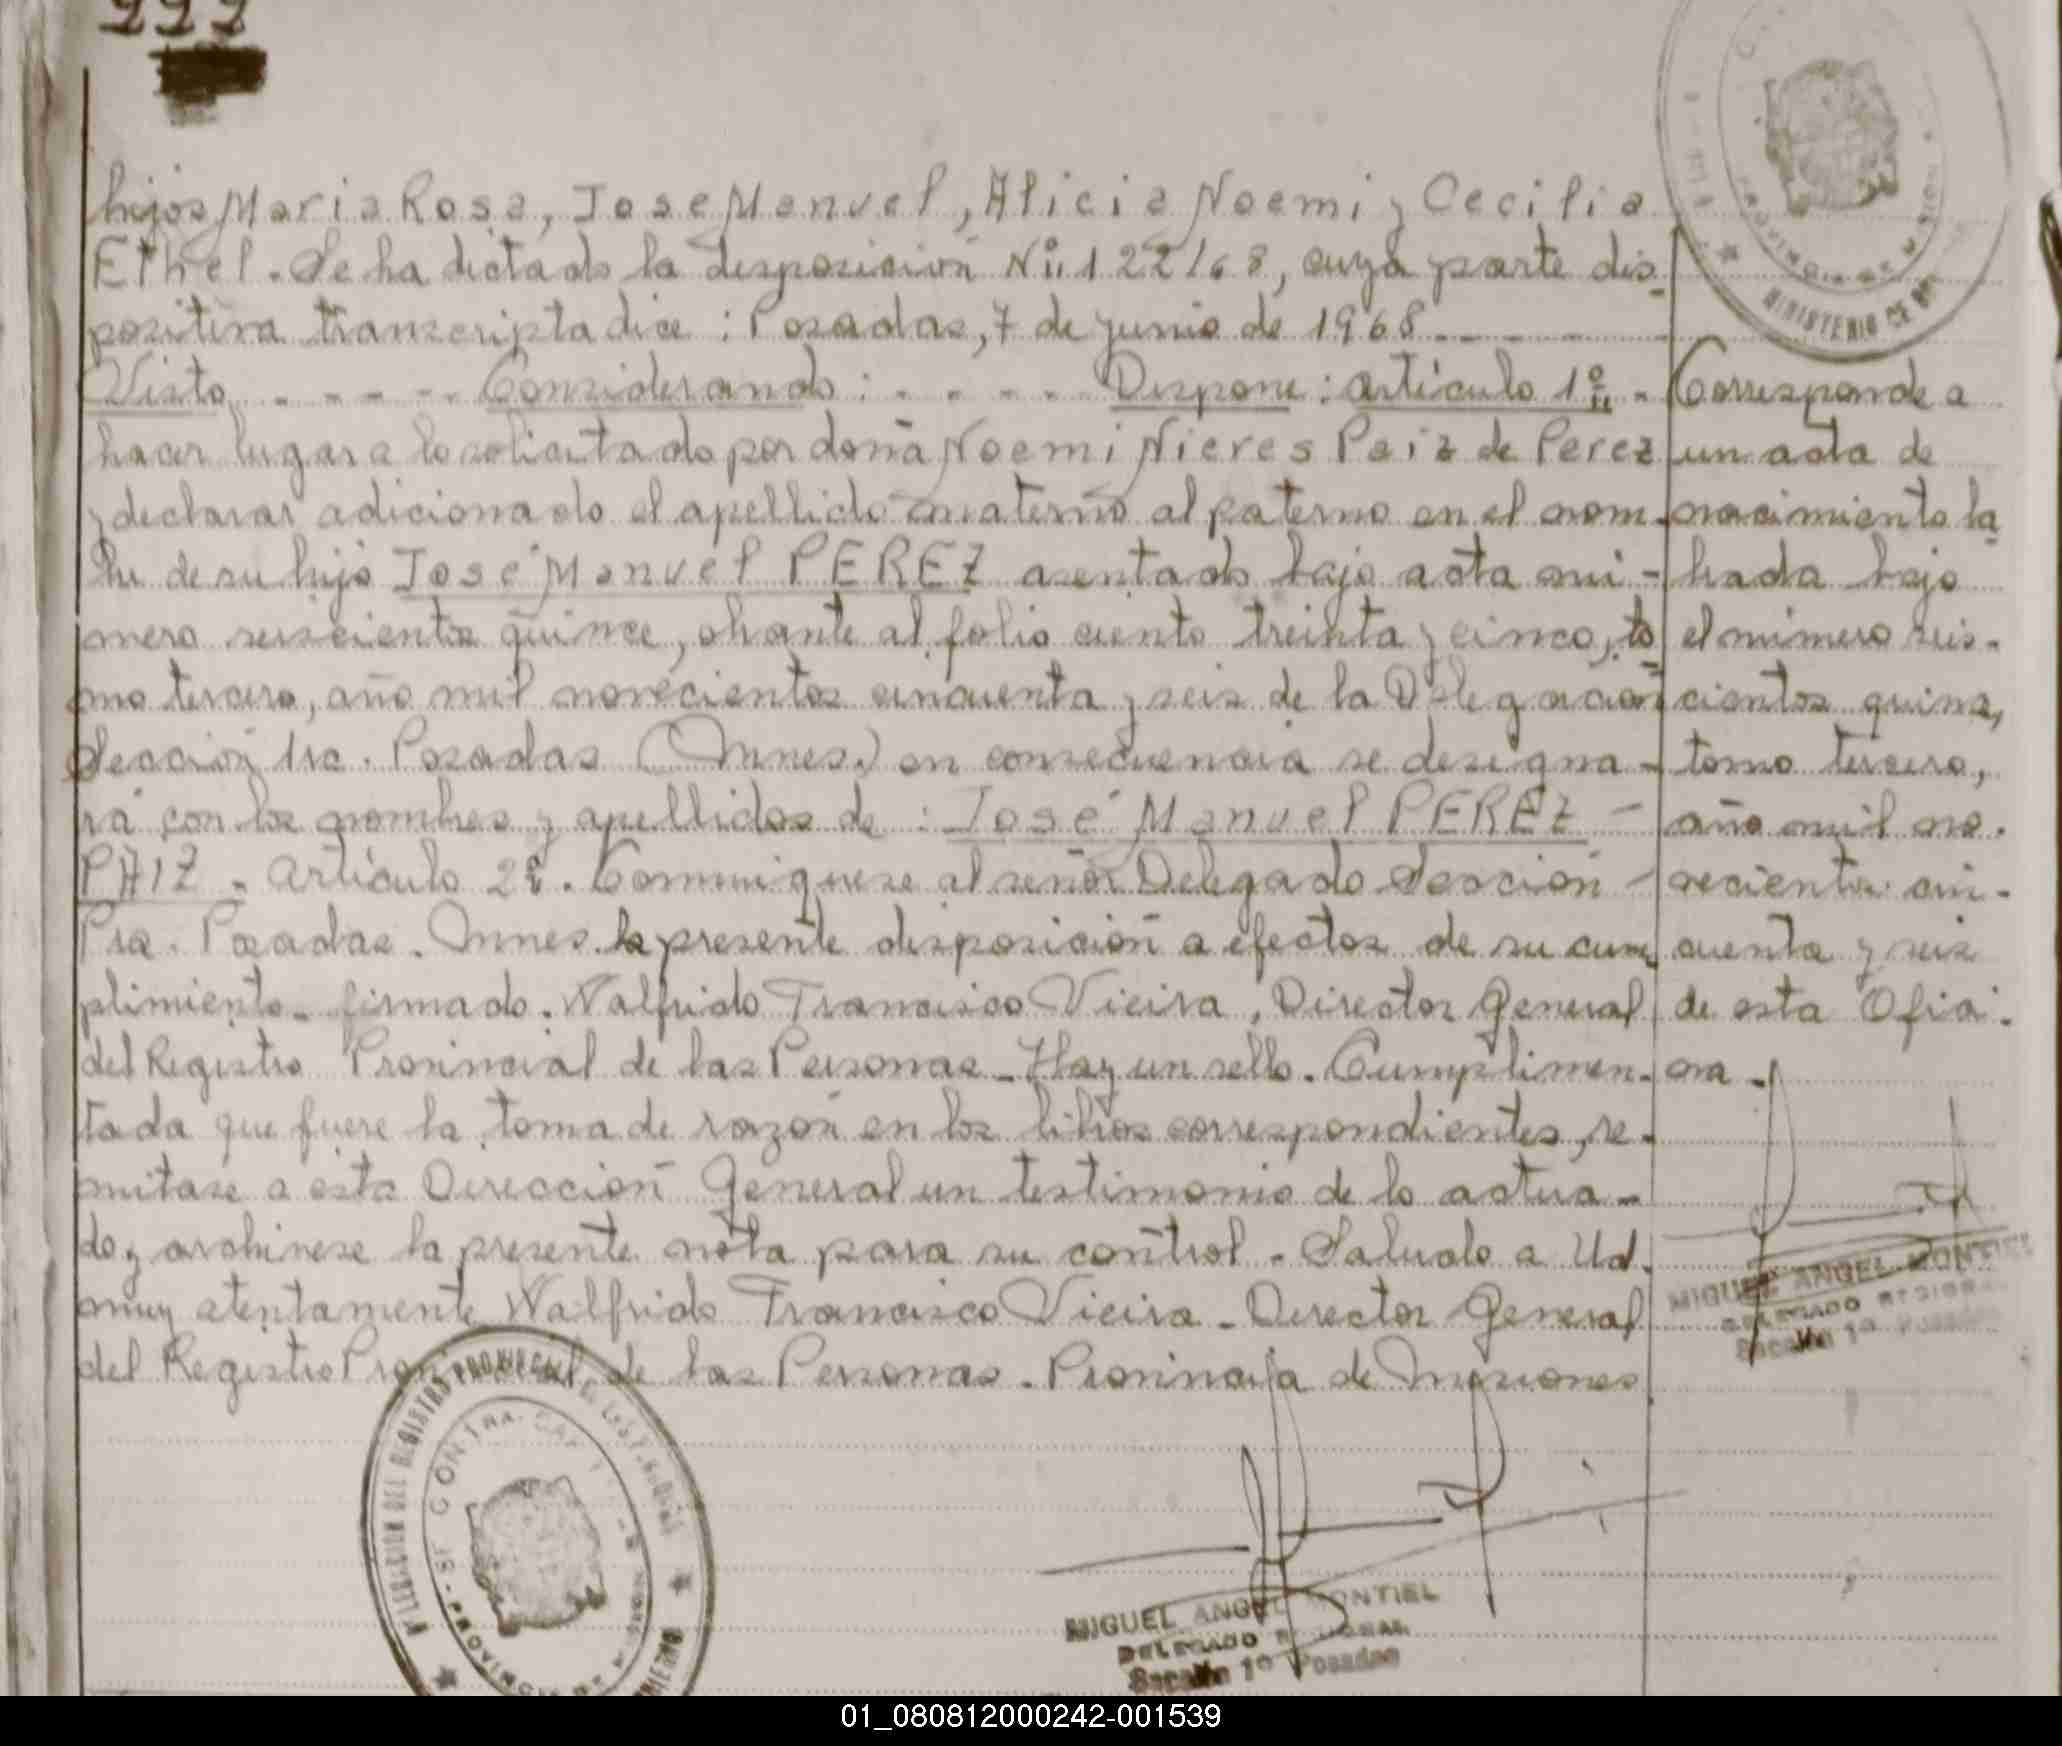 222
hijos Maria Rosa, Jose Manuel, Alicia Noemi y Cecilia
Ethel. Se ha dictado la disposición Nº 122/68, cuya parte dis-
positiva transcripta dice: Posadas, 7 de junio de 1968
Visto - - - - Considerando: - - - - Dispone: artículo 1º -
hacer lugar a lo solicitado por doña Noemi Nieves Paiz de Perez
y declarar adicionado el apellido materno al paterno en el nom-
bre de su hijo José Manuel PEREZ asentado bajo acta nú-
mero seiscientos quince, obrante al folio ciento treinta y cinco, to
mo tercero, año mil novecientos cincuenta y seis de la Delegación
Sección 1ra. Posadas (Mnes.) en consecuencia se designa-
rá con los nombres y apellidos de: José Manuel PEREZ -
PAIZ. Artículo 2º. Comuníquese al señor Delegado Sección -
Pra. Posadas. Mnes. la presente disposición a efectos de su cum
plimiento. firmado. Walfrido Francisco Vieira, Director General
del Registro Provincial de las Personas - Hay un sello. Cumplimen-
tada que fuere la toma de razón en los libros correspondientes, re-
mítase a esta Dirección General un testimonio de lo actua-
do y archivese la presente nota para su control - Saludo a Ud.
muy atentamente Walfrido Francisco Vieira - Director General
del Registro Provincial de las Personas. Provincia de Misiones
Corresponde a
un acta de
nacimiento la
brada bajo
el número seis-
cientos quince,
tomo tercero,
año mil no-
vecientos cin-
cuenta y seis
de esta Ofici-
na -
MINISTERIO DE
MIGUEL ANGEL MONTIEL
DELEGADO REGIONAL
Sección 1º Posadas
DELEGACION DEL REGISTRO PROVINCIAL DE LAS PERSONAS
MIGUEL ANGEL MONTIEL
DELEGADO REGIONAL
Sección 1º Posadas
01_080812000242-001539